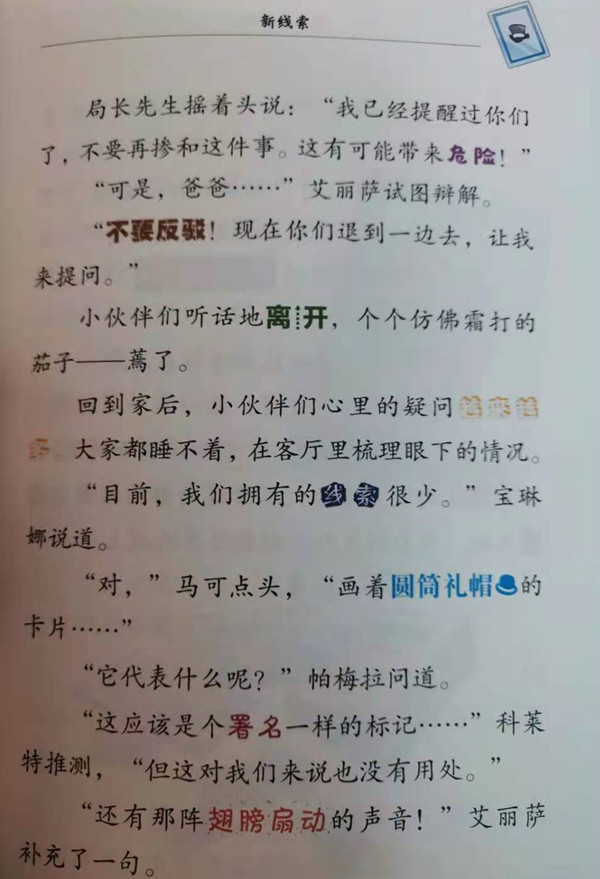 新线索
局长先生摇着头说：“我已经提醒过你们
了，不要再掺和这件事。这有可能带来危险！”
“可是，爸爸……”艾丽萨试图辩解。
“不要反驳！现在你们退到一边去，让我
来提问。”
小伙伴们听话地离开，个个仿佛霜打的
茄子——蔫了。
回到家后，小伙伴们心里的疑问越来越
多。大家都睡不着，在客厅里梳理眼下的情况。
“目前，我们拥有的线索很少。”宝琳
娜说道。
“对，”马可点头，“画着圆筒礼帽的
卡片……”
“它代表什么呢？”帕梅拉问道。
“这应该是个署名一样的标记……”科莱
特推测，“但这对我们来说也没有用处。”
“还有那阵翅膀扇动的声音！”艾丽萨
补充了一句。